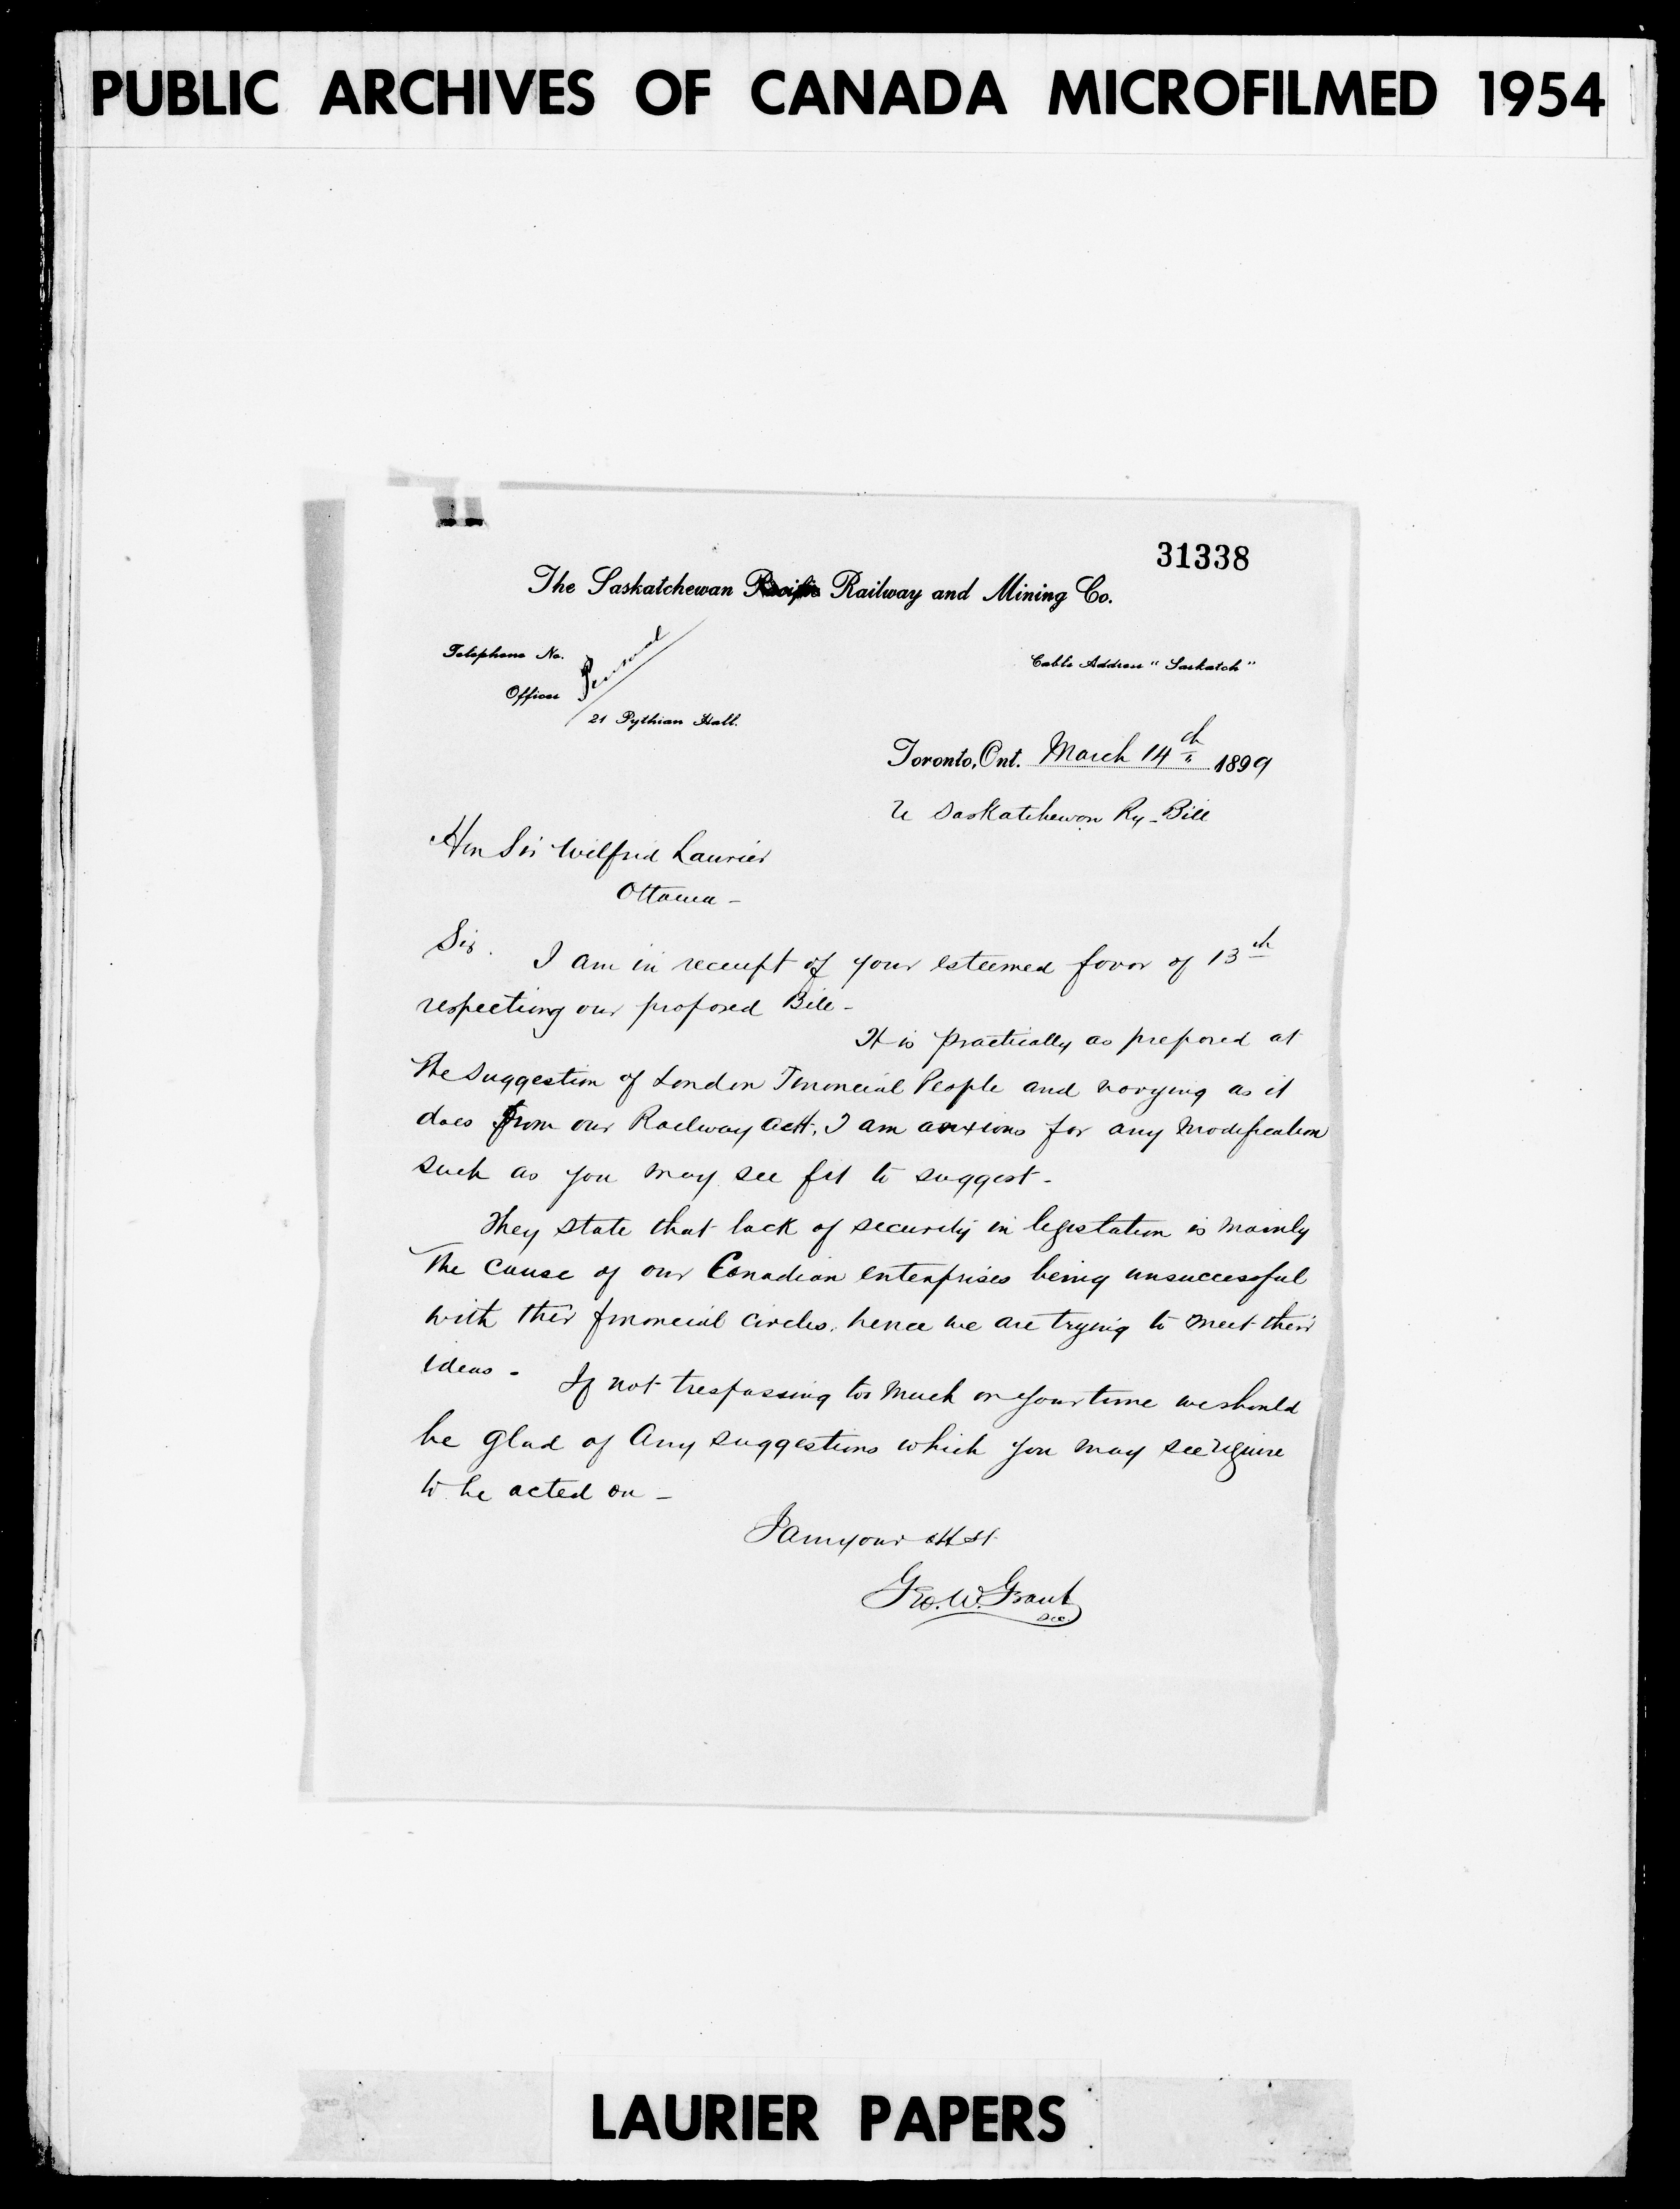 PUBLIC ARCHIVES OF CANADA MICROFILMED 1954
31338
The Saskatchewan Pacific Railway and Mining Co.
Telephone No.
Personal
Cable Address "Saskatch"
Offices
21 Pythian Hall.
Toronto, Ont. March 14th 1899
re Saskatchewan Ry. Bill
Hon Sir Wilfrid Laurier
Ottawa -
Sir. I am in receipt of your esteemed favor of 13th
respecting our proposed Bill -
It is practically as prepared at
the suggestion of London Financial People and varying as it
does from our Railway Act, I am anxious for any modification
such as you may see fit to suggest -
They state that lack of security in legislation is mainly
the cause of our Canadian enterprises being unsuccessful
with their financial circles, hence we are trying to meet their
ideas -
If not trespassing too much on your time we should
be glad of any suggestions which you may see require
to be acted on -
I am your
Geo. W. Grant
Sec.
LAURIER PAPERS